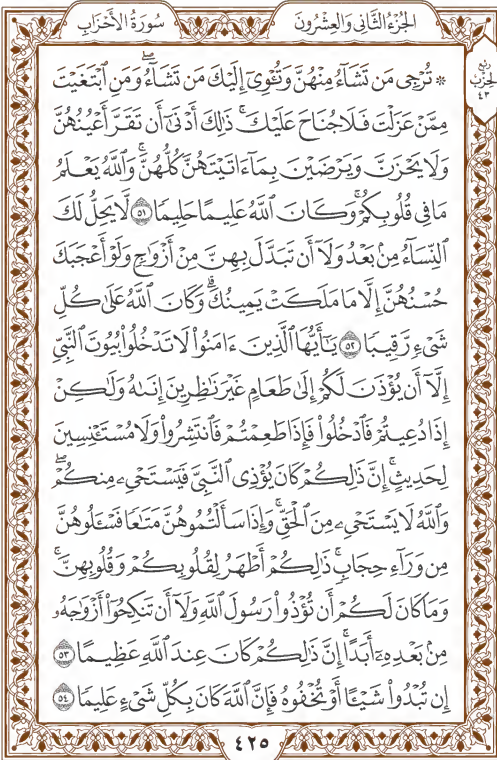 الجُزْءُ الثَّانِي وَالعِشْرُونَ
سُورَةُ الأَحْزَابِ
ربع
الحزب
٤٣
۞ تُرْجِي مَن تَشَآءُ مِنْهُنَّ وَتُـْٔوِيٓ إِلَيْكَ مَن تَشَآءُۖ وَمَنِ ٱبْتَغَيْتَ
مِمَّنْ عَزَلْتَ فَلَا جُنَاحَ عَلَيْكَۚ ذَٰلِكَ أَدْنَىٰٓ أَن تَقَرَّ أَعْيُنُهُنَّ
وَلَا يَحْزَنَّ وَيَرْضَيْنَ بِمَآ ءَاتَيْتَهُنَّ كُلُّهُنَّۚ وَٱللَّهُ يَعْلَمُ
مَا فِي قُلُوبِكُمْۚ وَكَانَ ٱللَّهُ عَلِيمًا حَلِيمًا ٥١ لَّا يَحِلُّ لَكَ
ٱلنِّسَآءُ مِنۢ بَعْدُ وَلَآ أَن تَبَدَّلَ بِهِنَّ مِنْ أَزْوَٰجٍ وَلَوْ أَعْجَبَكَ
حُسْنُهُنَّ إِلَّا مَا مَلَكَتْ يَمِينُكَۗ وَكَانَ ٱللَّهُ عَلَىٰ كُلِّ
شَيْءٍ رَّقِيبًا ٥٢ يَٰٓأَيُّهَا ٱلَّذِينَ ءَامَنُوا۟ لَا تَدْخُلُوا۟ بُيُوتَ ٱلنَّبِيِّ
إِلَّآ أَن يُؤْذَنَ لَكُمْ إِلَىٰ طَعَامٍ غَيْرَ نَٰظِرِينَ إِنَىٰهُ وَلَٰكِنْ
إِذَا دُعِيتُمْ فَٱدْخُلُوا۟ فَإِذَا طَعِمْتُمْ فَٱنتَشِرُوا۟ وَلَا مُسْتَـْٔنِسِينَ
لِحَدِيثٍۚ إِنَّ ذَٰلِكُمْ كَانَ يُؤْذِي ٱلنَّبِيَّ فَيَسْتَحْيِۦ مِنكُمْۖ
وَٱللَّهُ لَا يَسْتَحْيِۦ مِنَ ٱلْحَقِّۚ وَإِذَا سَأَلْتُمُوهُنَّ مَتَٰعًا فَسْـَٔلُوهُنَّ
مِن وَرَآءِ حِجَابٍۚ ذَٰلِكُمْ أَطْهَرُ لِقُلُوبِكُمْ وَقُلُوبِهِنَّۚ
وَمَا كَانَ لَكُمْ أَن تُؤْذُوا۟ رَسُولَ ٱللَّهِ وَلَآ أَن تَنكِحُوٓا۟ أَزْوَٰجَهُۥ
مِنۢ بَعْدِهِۦٓ أَبَدًاۚ إِنَّ ذَٰلِكُمْ كَانَ عِندَ ٱللَّهِ عَظِيمًا ٥٣
إِن تُبْدُوا۟ شَيْـًٔا أَوْ تُخْفُوهُ فَإِنَّ ٱللَّهَ كَانَ بِكُلِّ شَيْءٍ عَلِيمًا ٥٤
٤٢٥